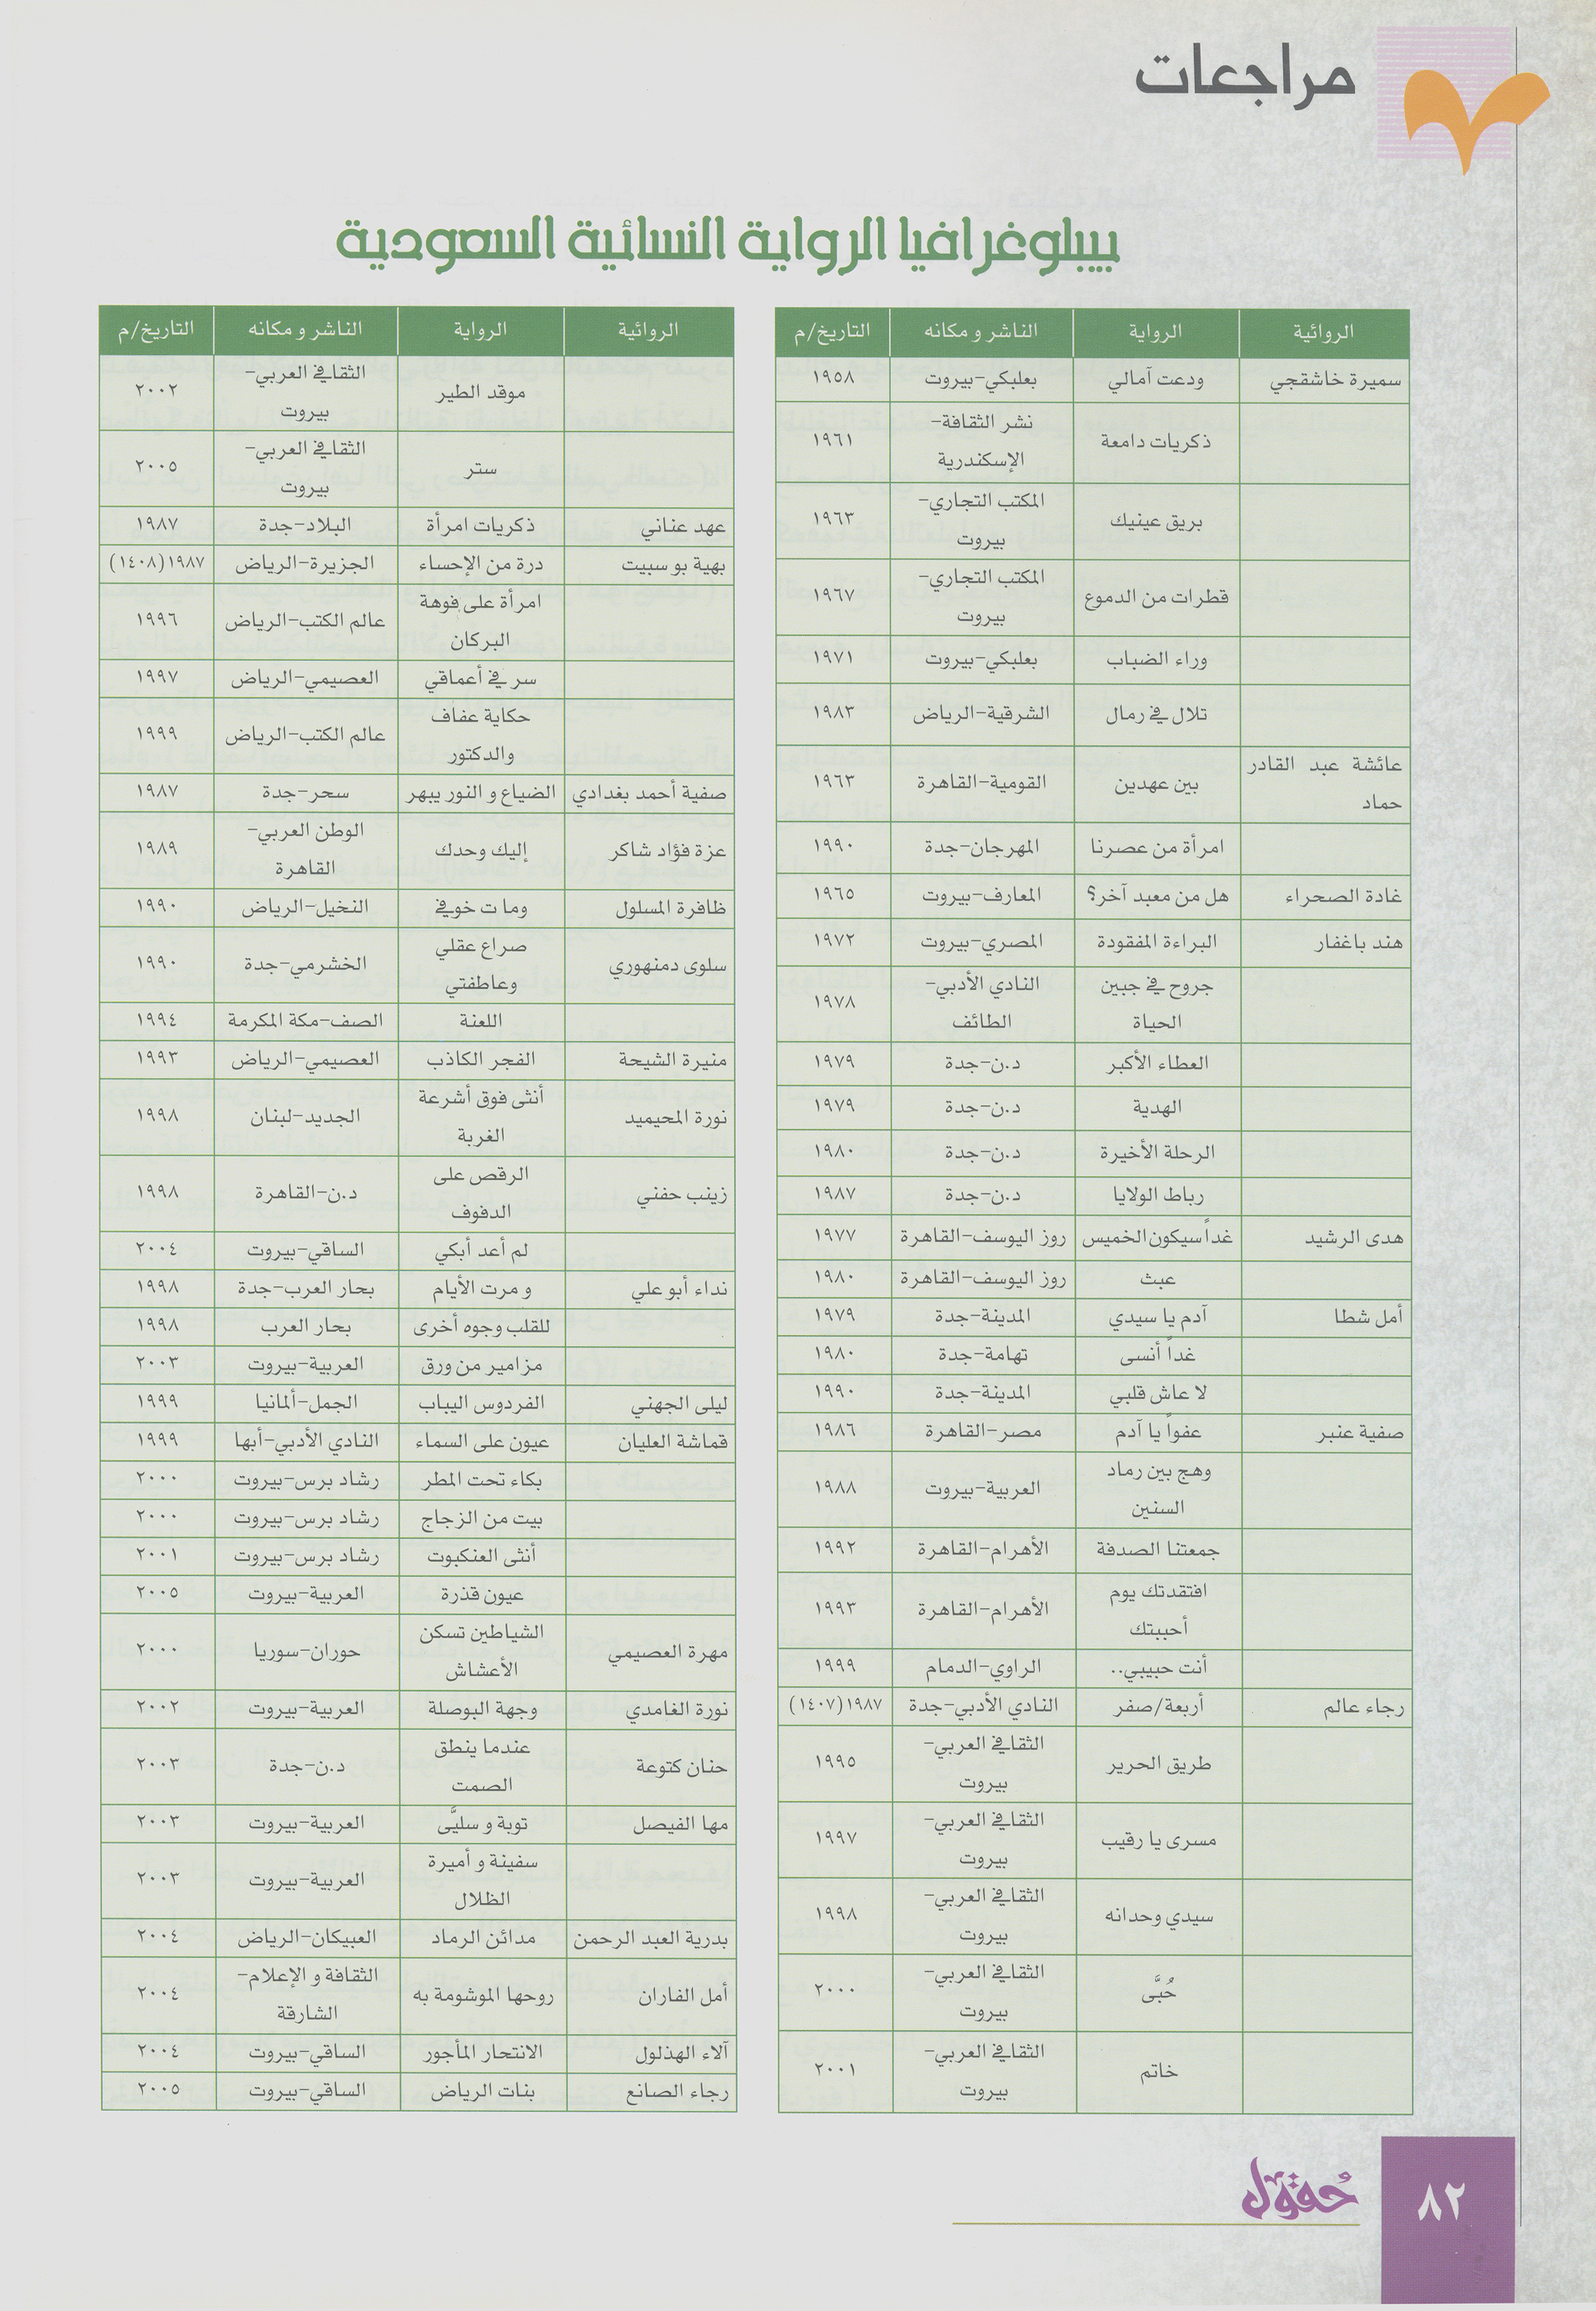 مراجعات
ببلوغرافيا الرواية النسائية السعودية
الروائية الرواية الناشر ومكانه التاريخ/م
سميرة خاشقجي ودعت آمالي بعلبكي-بيروت ١٩٥٨
ذكريات دامعة نشر الثقافة-الإسكندرية ١٩٦١
بريق عينيك المكتب التجاري-بيروت ١٩٦٣
قطرات من الدموع المكتب التجاري-بيروت ١٩٦٧
وراء الضباب بعلبكي-بيروت ١٩٧١
تلال في رمال الشرقية-الرياض ١٩٨٣
عائشة عبد القادر حماد بين عهدين القومية-القاهرة ١٩٦٣
امرأة من عصرنا المهرجان-جدة ١٩٩٠
غادة الصحراء هل من معبد آخر؟ المعارف-بيروت ١٩٦٥
هند باغفار البراءة المفقودة المصري-بيروت ١٩٧٢
جروح في جبين الحياة النادي الأدبي-الطائف ١٩٧٨
العطاء الأكبر د.ن-جدة ١٩٧٩
الهدية د.ن-جدة ١٩٧٩
الرحلة الأخيرة د.ن-جدة ١٩٨٠
رباط الولايا د.ن-جدة ١٩٨٧
هدى الرشيد غداً سيكون الخميس روز اليوسف-القاهرة ١٩٧٧
عبث روز اليوسف-القاهرة ١٩٨٠
أمل شطا آدم يا سيدي المدينة-جدة ١٩٧٩
غداً أنسى تهامة-جدة ١٩٨٠
لا عاش قلبي المدينة-جدة ١٩٩٠
صفية عنبر عفواً يا آدم مصر-القاهرة ١٩٨٦
وهج بين رماد السنين العربية-بيروت ١٩٨٨
جمعتنا الصدفة الأهرام-القاهرة ١٩٩٢
افتقدتك يوم أحببتك الأهرام-القاهرة ١٩٩٣
أنت حبيبي.. الراوي-الدمام ١٩٩٩
رجاء عالم أربعة/صفر النادي الأدبي-جدة ١٩٨٧(١٤٠٧)
طريق الحرير الثقافي العربي-بيروت ١٩٩٥
مسرى يا رقيب الثقافي العربي-بيروت ١٩٩٧
سيدي وحدانه الثقافي العربي-بيروت ١٩٩٨
حُبَّى الثقافي العربي-بيروت ٢٠٠٠
خاتم الثقافي العربي-بيروت ٢٠٠١
الروائية الرواية الناشر ومكانه التاريخ/م
موقد الطير الثقافي العربي-بيروت ٢٠٠٢
ستر الثقافي العربي-بيروت ٢٠٠٥
عهد عناني ذكريات امرأة البلاد-جدة ١٩٨٧
بهية بو سبيت درة من الإحساء الجزيرة-الرياض ١٩٨٧(١٤٠٨)
امرأة على فوهة البركان عالم الكتب-الرياض ١٩٩٦
سر في أعماقي العصيمي-الرياض ١٩٩٧
حكاية عفاف والدكتور عالم الكتب-الرياض ١٩٩٩
صفية أحمد بغدادي الضياع و النور يبهر سحر-جدة ١٩٨٧
عزة فؤاد شاكر إليك وحدك الوطن العربي-القاهرة ١٩٨٩
ظافرة المسلول وما ت خوفي النخيل-الرياض ١٩٩٠
سلوى دمنهوري صراع عقلي وعاطفتي الخشرمي-جدة ١٩٩٠
اللعنة الصف-مكة المكرمة ١٩٩٤
منيرة الشيحة الفجر الكاذب العصيمي-الرياض ١٩٩٣
نورة المحيميد أنثى فوق أشرعة الغربة الجديد-لبنان ١٩٩٨
زينب حفني الرقص على الدفوف د.ن-القاهرة ١٩٩٨
لم أعد أبكي الساقي-بيروت ٢٠٠٤
نداء أبو علي و مرت الأيام بحار العرب-جدة ١٩٩٨
للقلب وجوه أخرى بحار العرب ١٩٩٨
مزامير من ورق العربية-بيروت ٢٠٠٣
ليلى الجهني الفردوس اليباب الجمل-ألمانيا ١٩٩٩
قماشة العليان عيون على السماء النادي الأدبي-أبها ١٩٩٩
بكاء تحت المطر رشاد برس-بيروت ٢٠٠٠
بيت من الزجاج رشاد برس-بيروت ٢٠٠٠
أنثى العنكبوت رشاد برس-بيروت ٢٠٠١
عيون قذرة العربية-بيروت ٢٠٠٥
مهرة العصيمي الشياطين تسكن الأعشاش حوران-سوريا ٢٠٠٠
نورة الغامدي وجهة البوصلة العربية-بيروت ٢٠٠٢
حنان كتوعة عندما ينطق الصمت د.ن-جدة ٢٠٠٣
مها الفيصل توبة و سليَّى العربية-بيروت ٢٠٠٣
سفينة و أميرة الظلال العربية-بيروت ٢٠٠٣
بدرية العبد الرحمن مدائن الرماد العبيكان-الرياض ٢٠٠٤
أمل الفاران روحها الموشومة به الثقافة و الإعلام-الشارقة ٢٠٠٤
آلاء الهذلول الانتحار المأجور الساقي-بيروت ٢٠٠٤
رجاء الصانع بنات الرياض الساقي-بيروت ٢٠٠٥
حُقول
٨٢